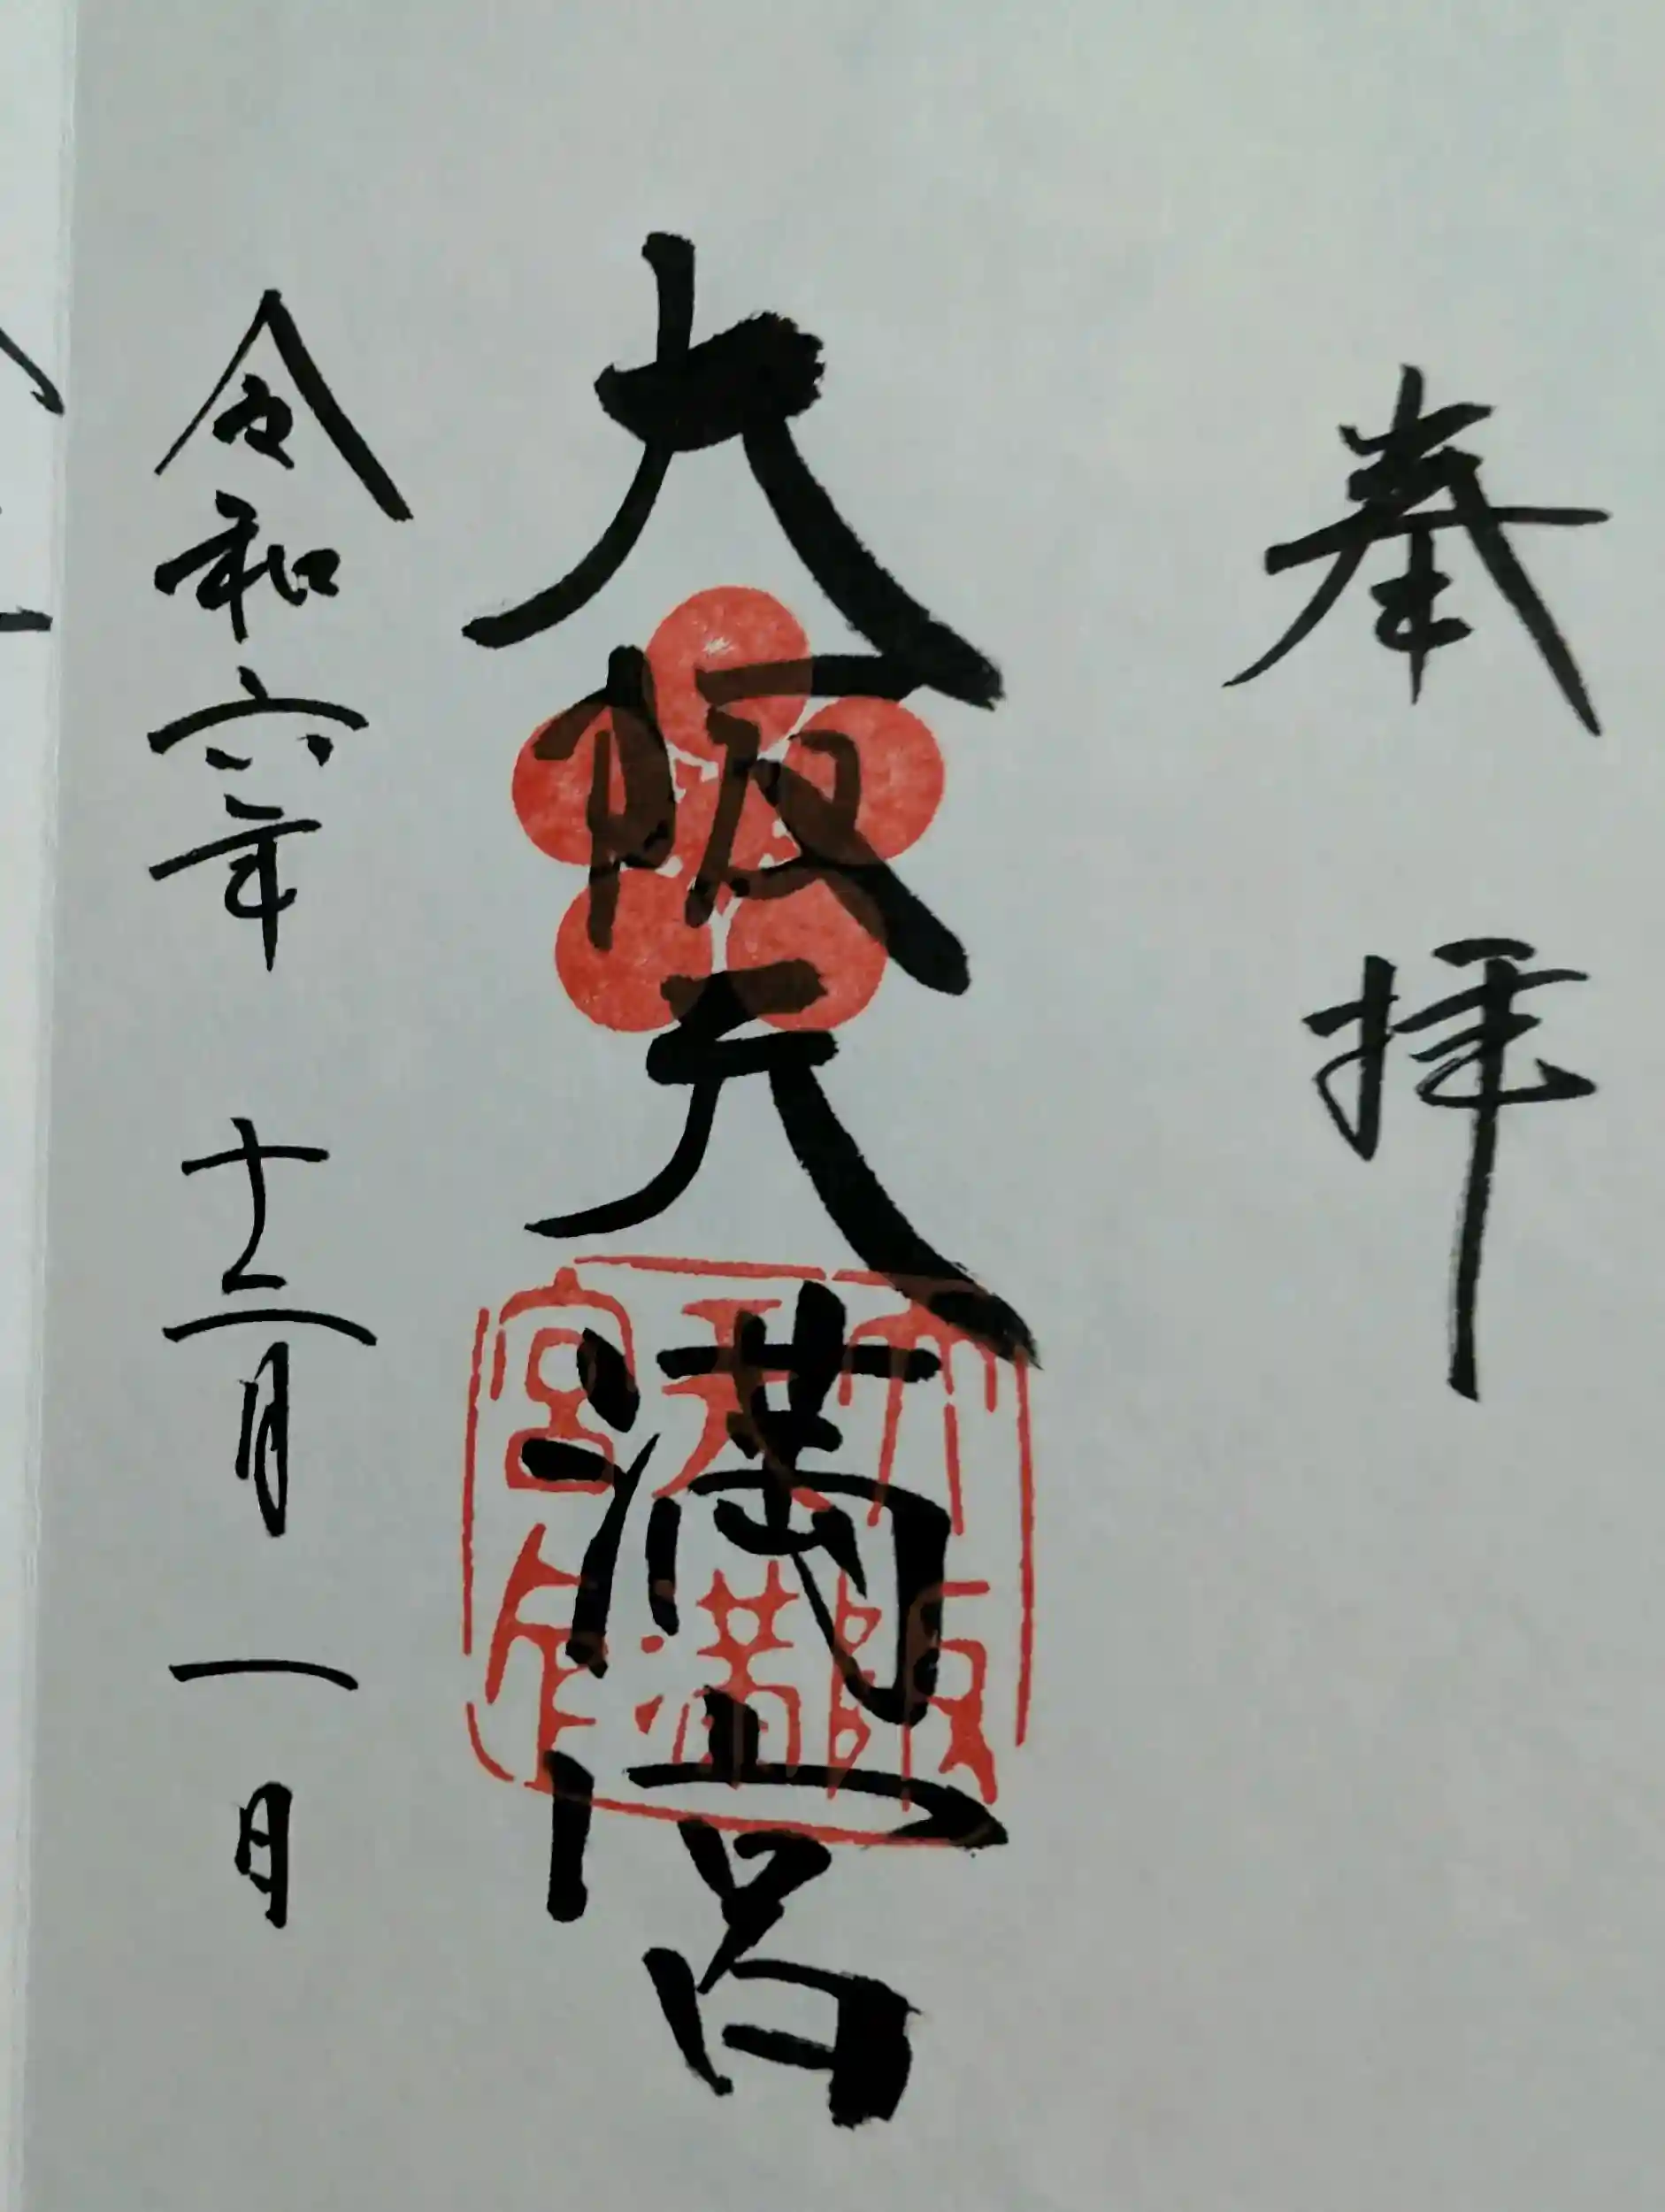 奉拝
大阪天満宮
大阪天満宮印
令和六年 十二月 一日